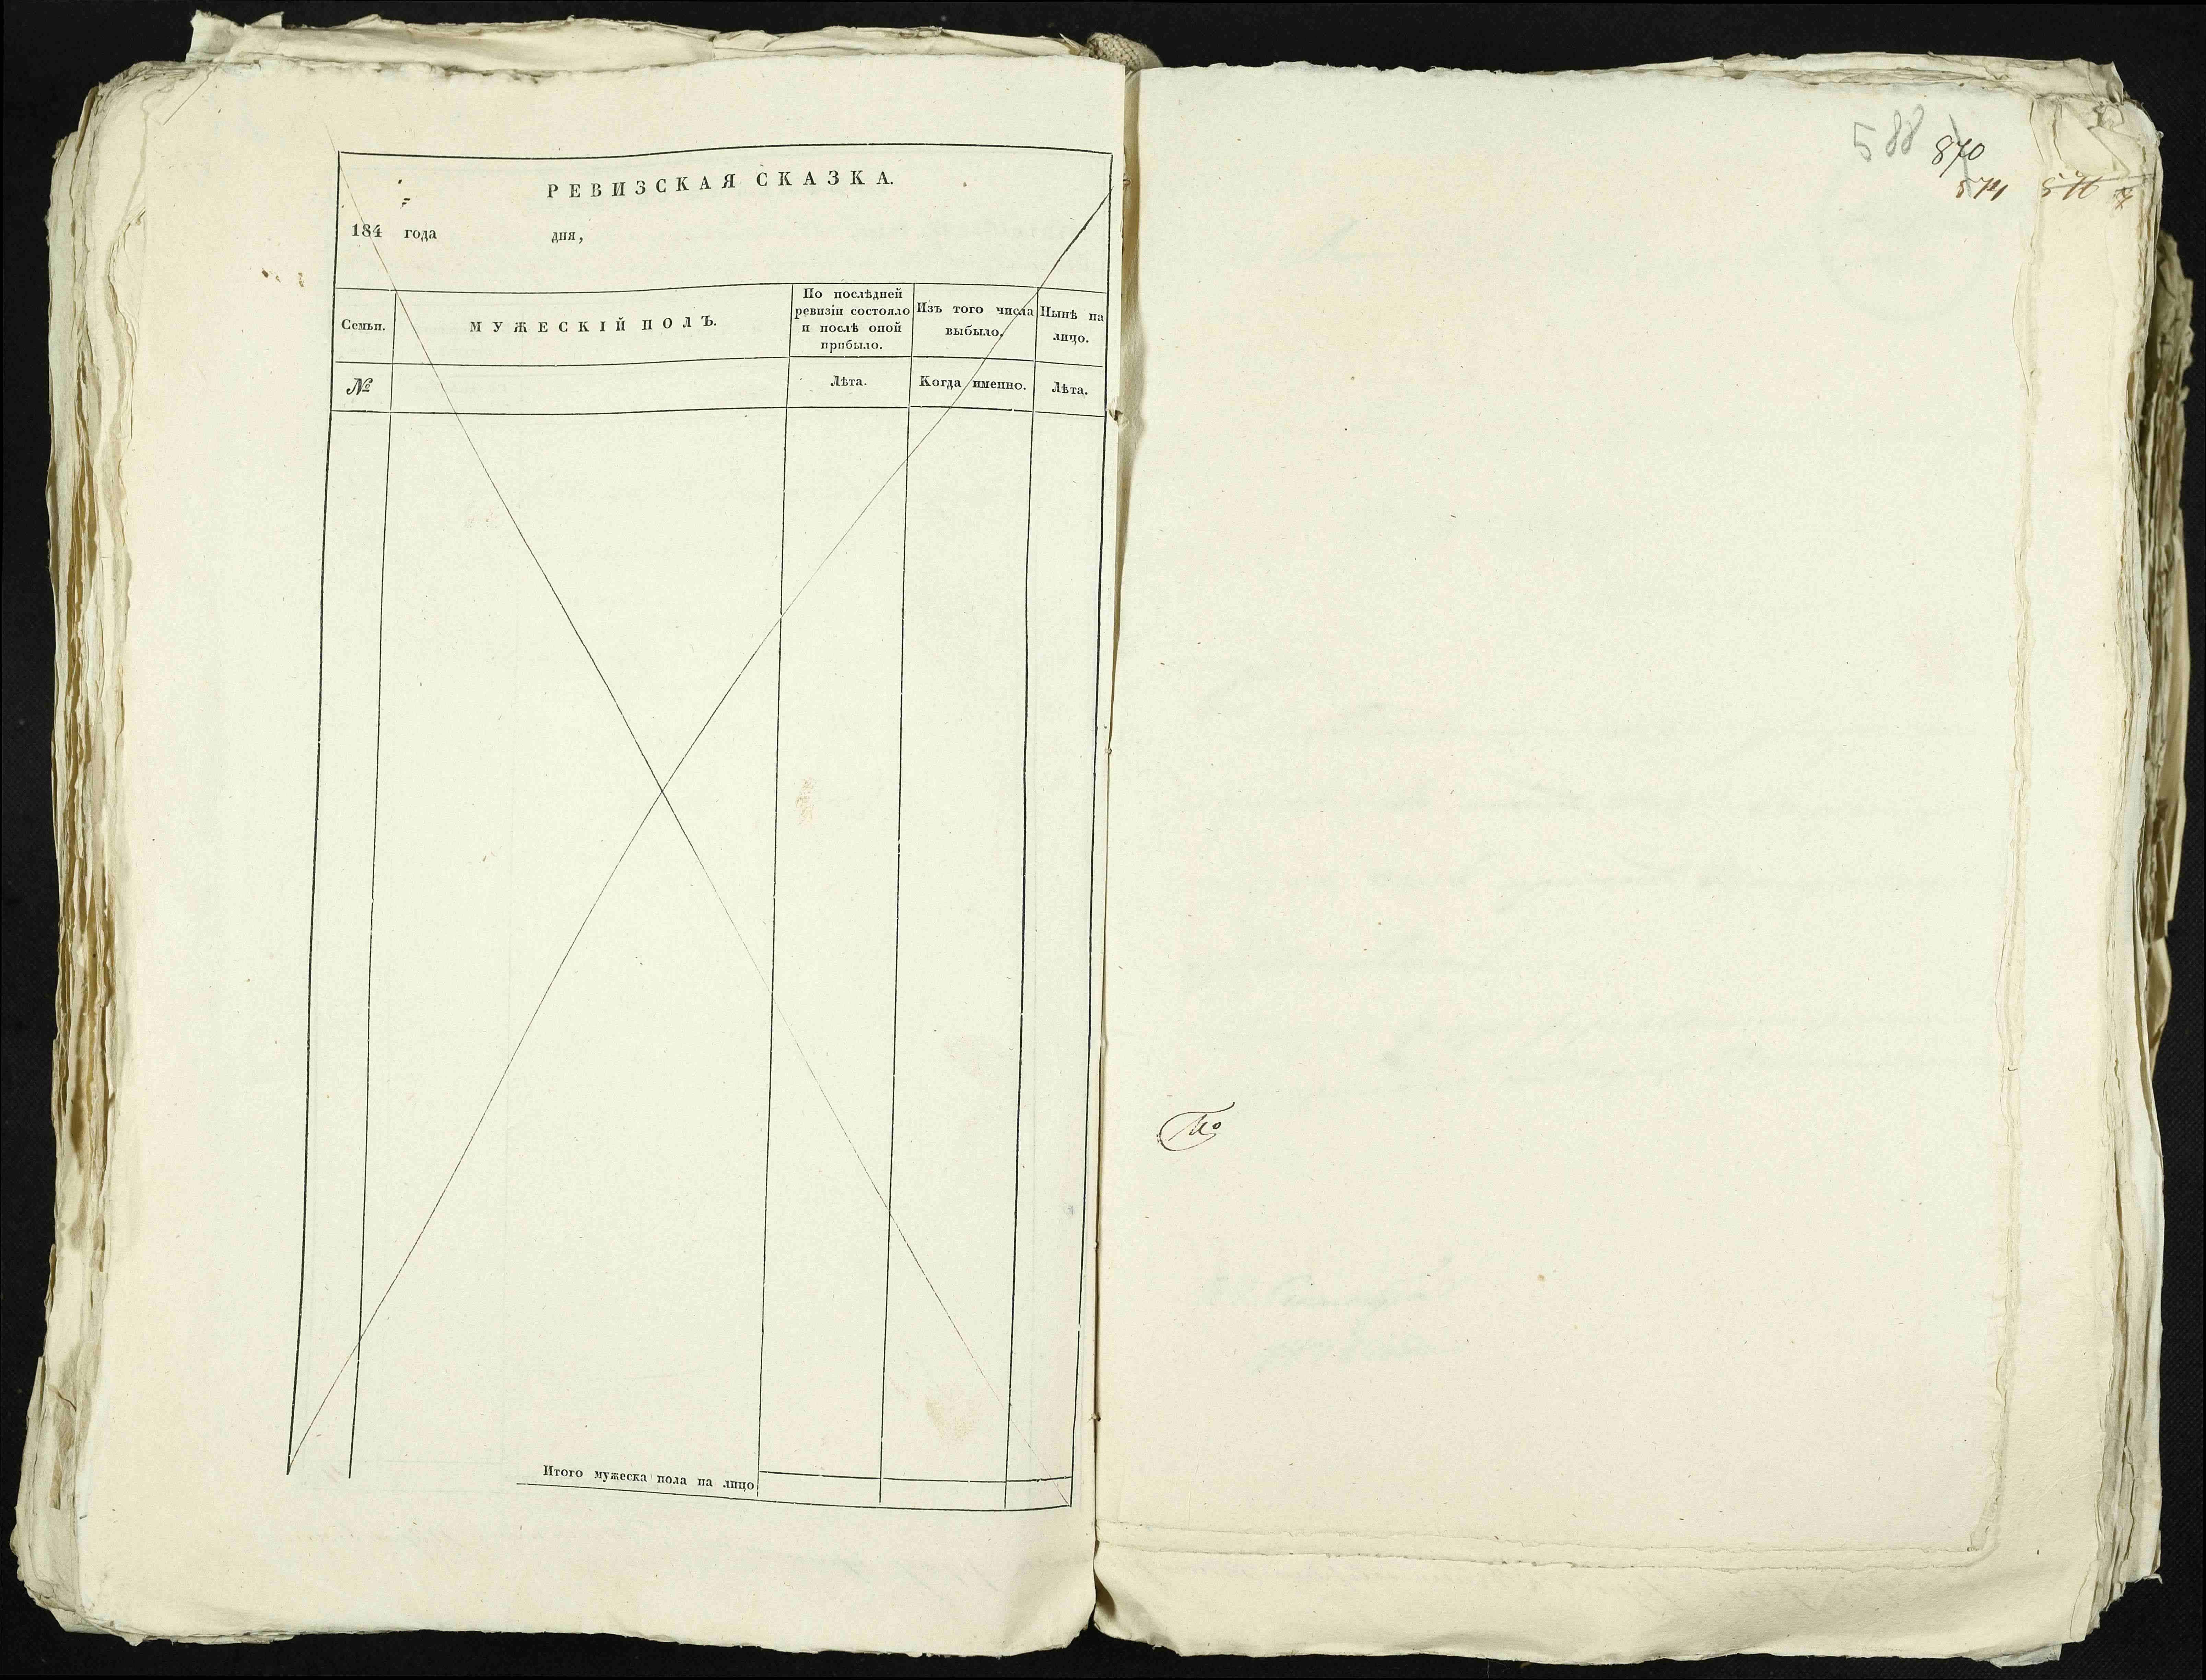 РЕВИЗСКАЯ СКАЗКА.
184 года дня,
Семьи.
МУЖЕСКІЙ ПОЛЪ.
По послѣдней
ревизіи состояло
и послѣ оной
прибыло.
Изъ того числа
выбыло.
Нынѣ на
лицо.
№
Лѣта.
Когда именно.
Лѣта.
Итого мужеска пола на лицо
588 870
574 576